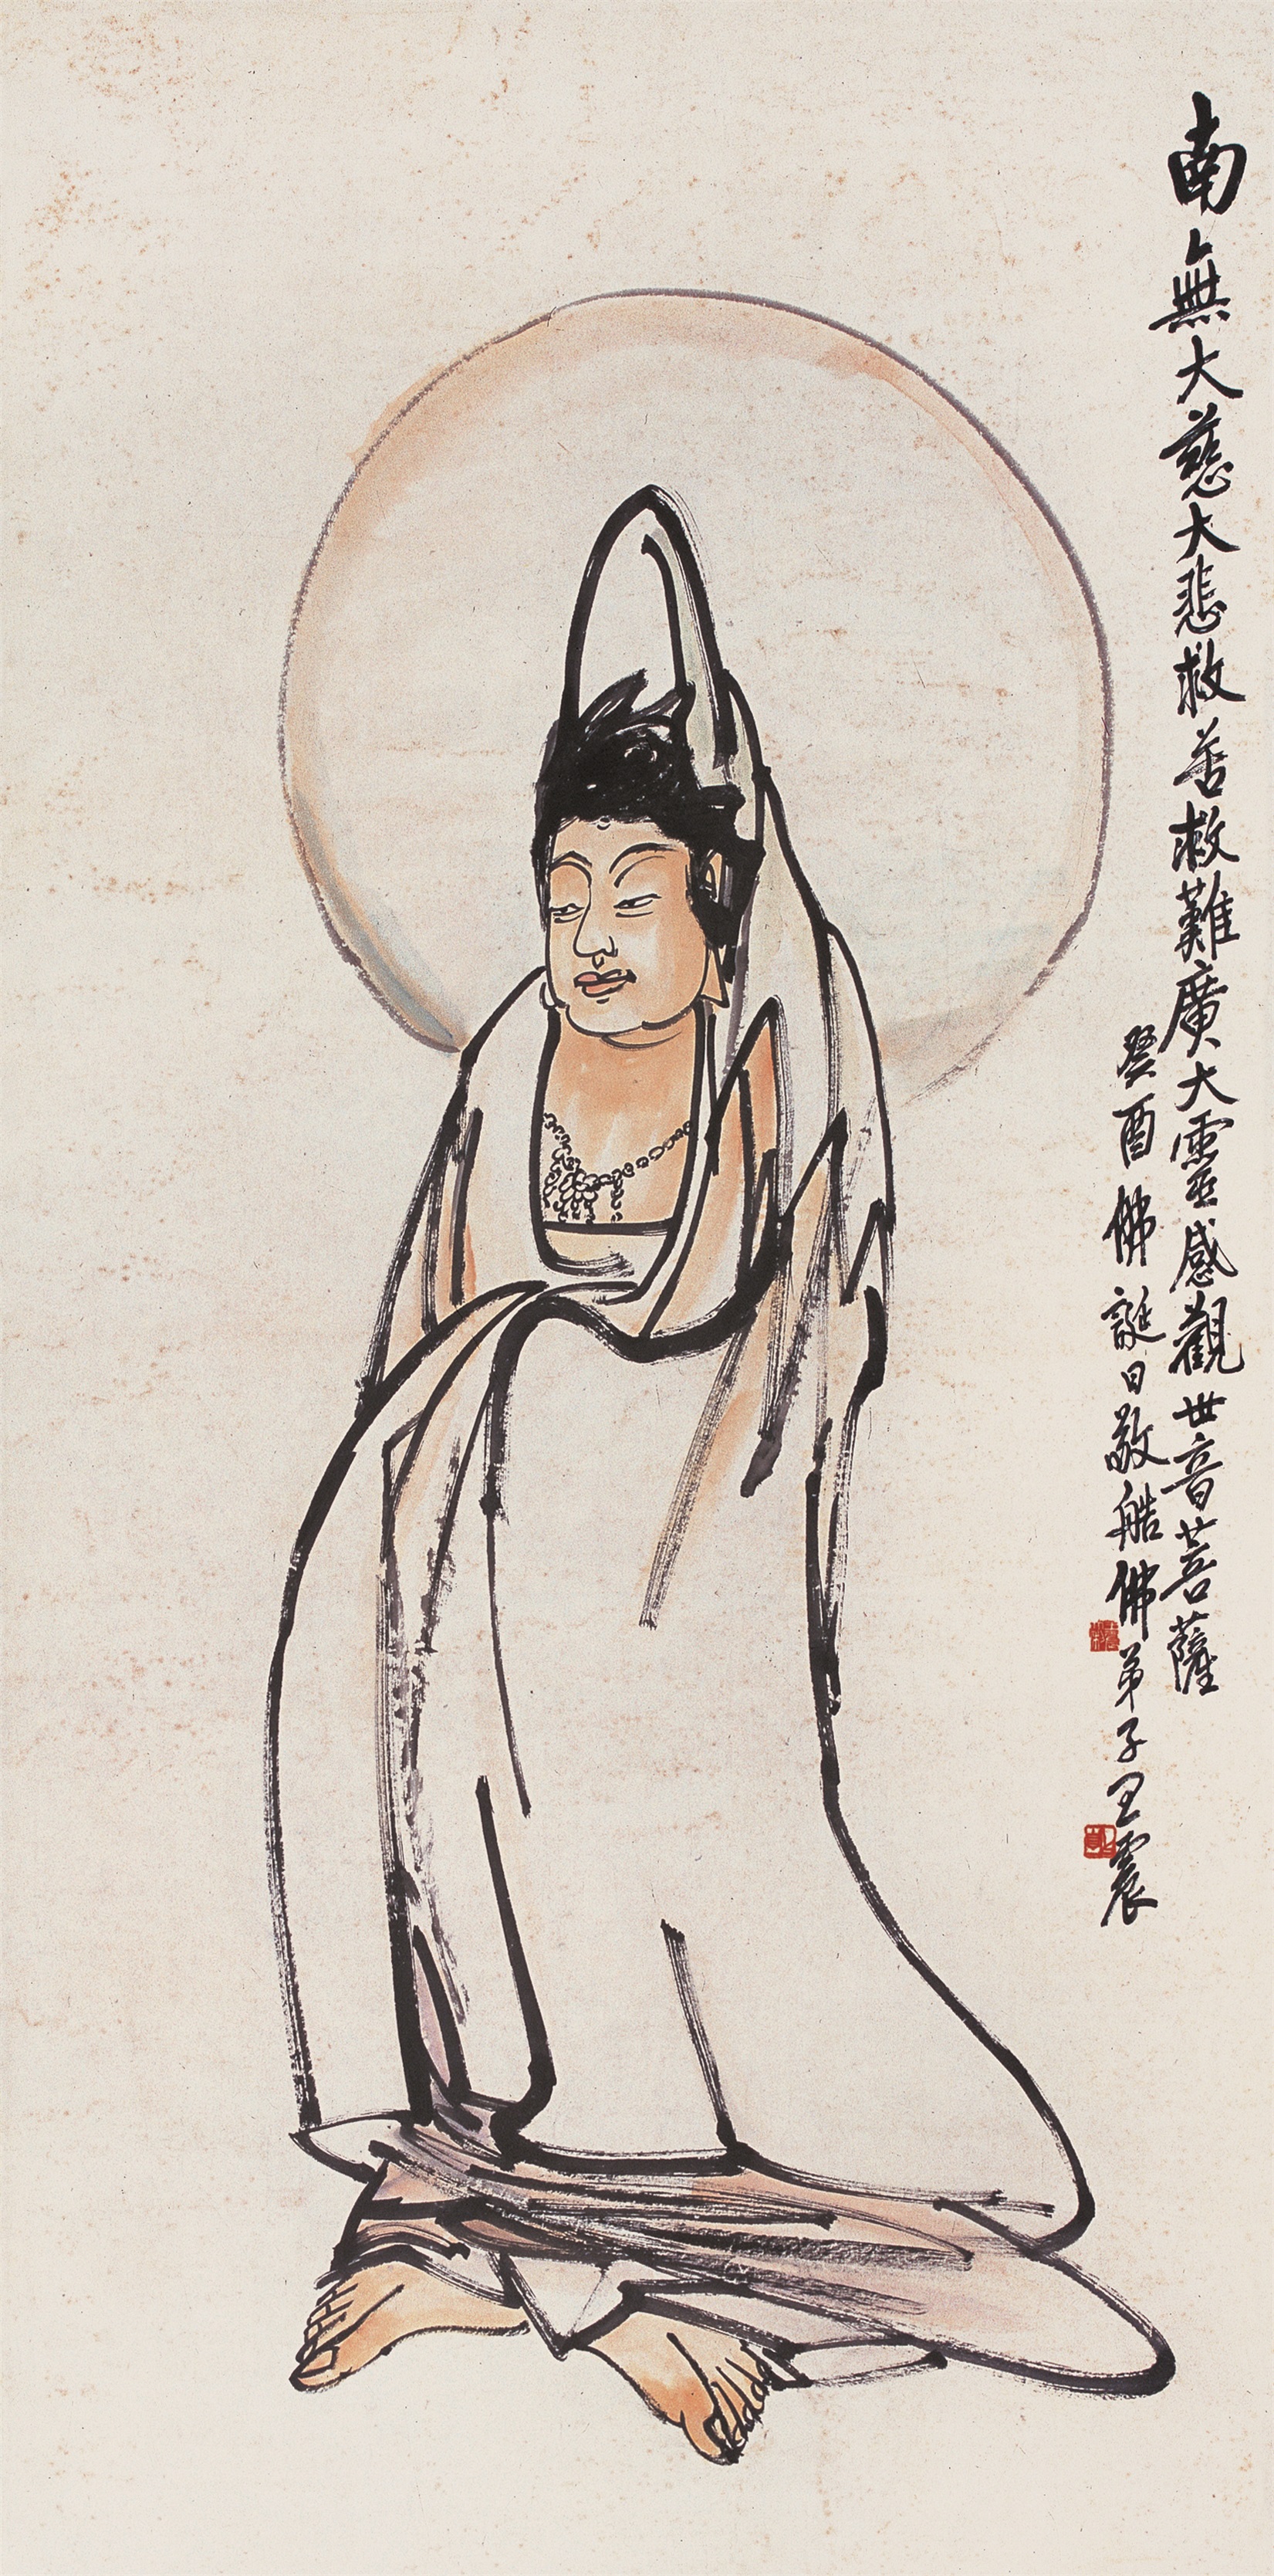 南無大慈大悲救苦救難廣大靈感觀世音菩薩
癸酉佛誕日敬艁佛弟子王震